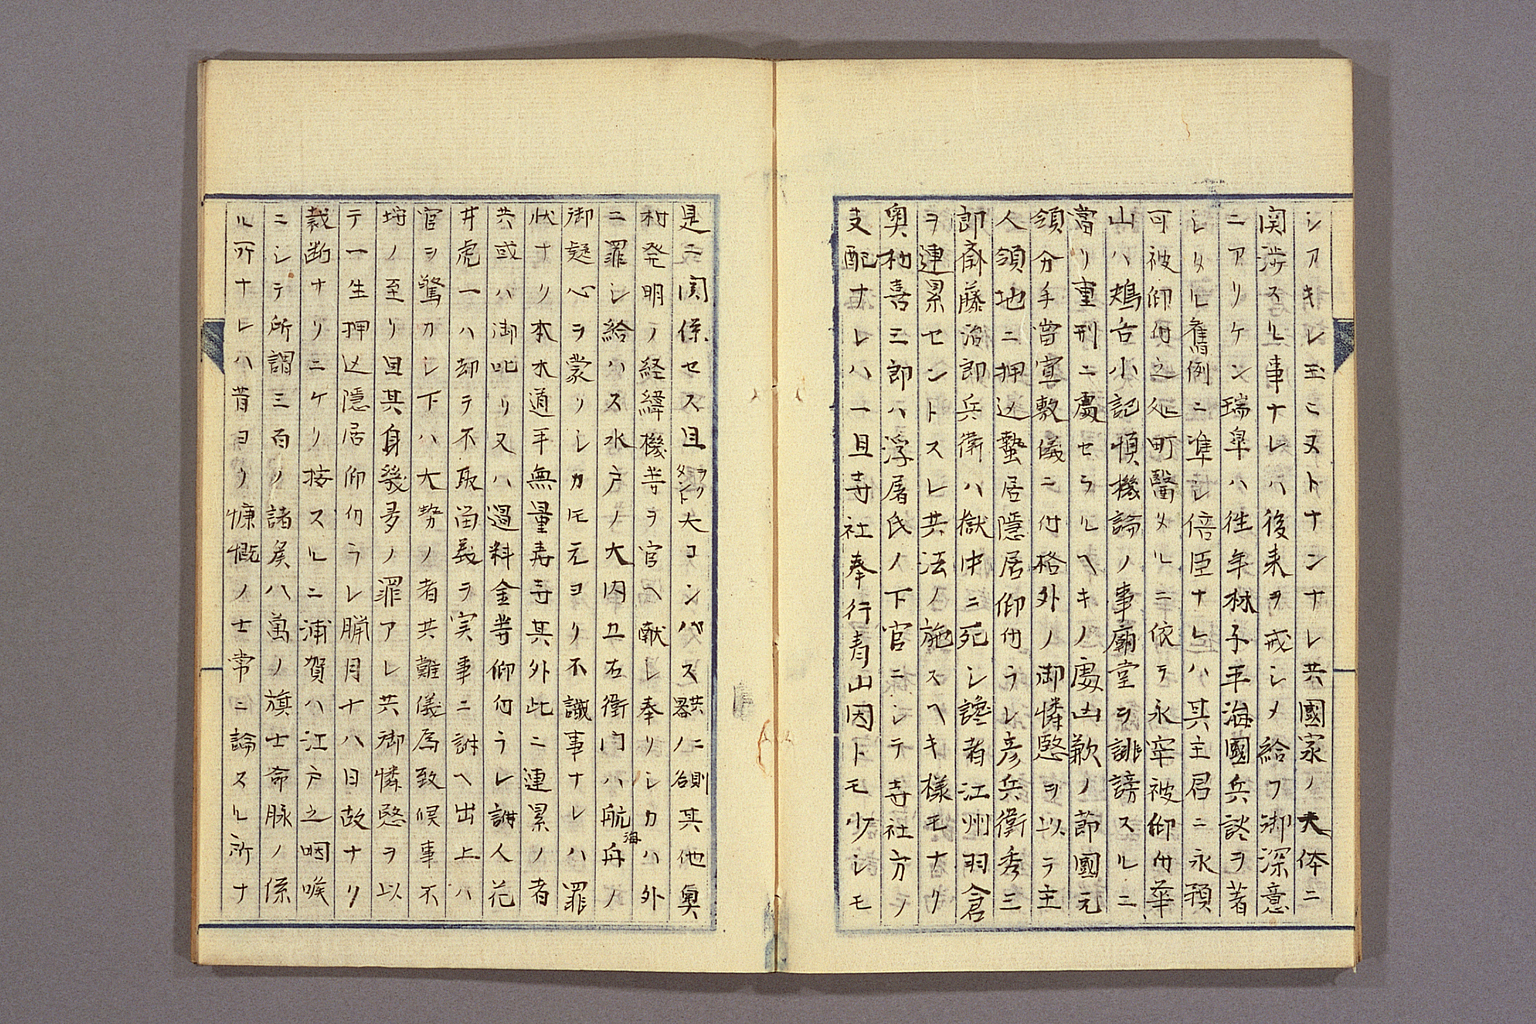 シアキレ玉ヒヌトナンナレ共國家ノ大体ニ
関渉スル事ナレハ後来ヲ戒シメ給フ御深意
ニアリケン瑞皐ハ徃年林子平海國兵談ヲ著
シタル舊例ニ準シ倍臣ナレハ其主君ニ永預
可被仰付之処町醫タルニ依テ永牢被仰付華
山ハ鴂舌小記慎機論ノ事廟堂ヲ誹謗スルニ
當リ重刑ニ處セラルヘキノ處凶歉ノ節國元
領分手當宜敷儀ニ付格外ノ御憐愍ヲ以テ主
人領地ニ押込蟄居隠居仰付ラレ彦兵衛秀三
郎斎藤治郎兵衛ハ獄中ニ死シ讒者江州羽倉
ヲ連累セントスレ共法ノ施スヘキ様モナク
奥村喜三郎ハ浮屠氏ノ下官ニシテ寺社方ノ
支配ナレハ一旦寺社奉行青山因トモ少シモ
是ニ関係セス且大コンパス器ノ則其他奥
村発明ノ経緯機等ヲ官ヘ献シ奉リシカハ外
ニ罪シ給ハス水戸ノ大内五右衛門ハ航海舟ノ
御疑心ヲ蒙リシカモ元ヨリ不識事ナレハ罪
状ナリ本木道平無量寿寺其外此ニ連累ノ者
共或ハ御叱リ又ハ過料金等仰付ラレ訴人花
井虎一ハ却テ不取留義ヲ実事ニ訴ヘ出上ハ
官ヲ驚カシ下ハ大勢ノ者共難儀為致候事不
埒ノ至リ且其身幾多ノ罪アレ共御憐愍ヲ以
テ一生押込隠居仰付ラレ臘月十八日故ナク
裁断ナリニケリ按スルニ浦賀ハ江戸之咽喉
ニシテ所謂三百ノ諸矦八萬ノ旗士命脉ノ係
ル所ナレハ昔ヨリ慷慨ノ士常ニ論スル所ナ